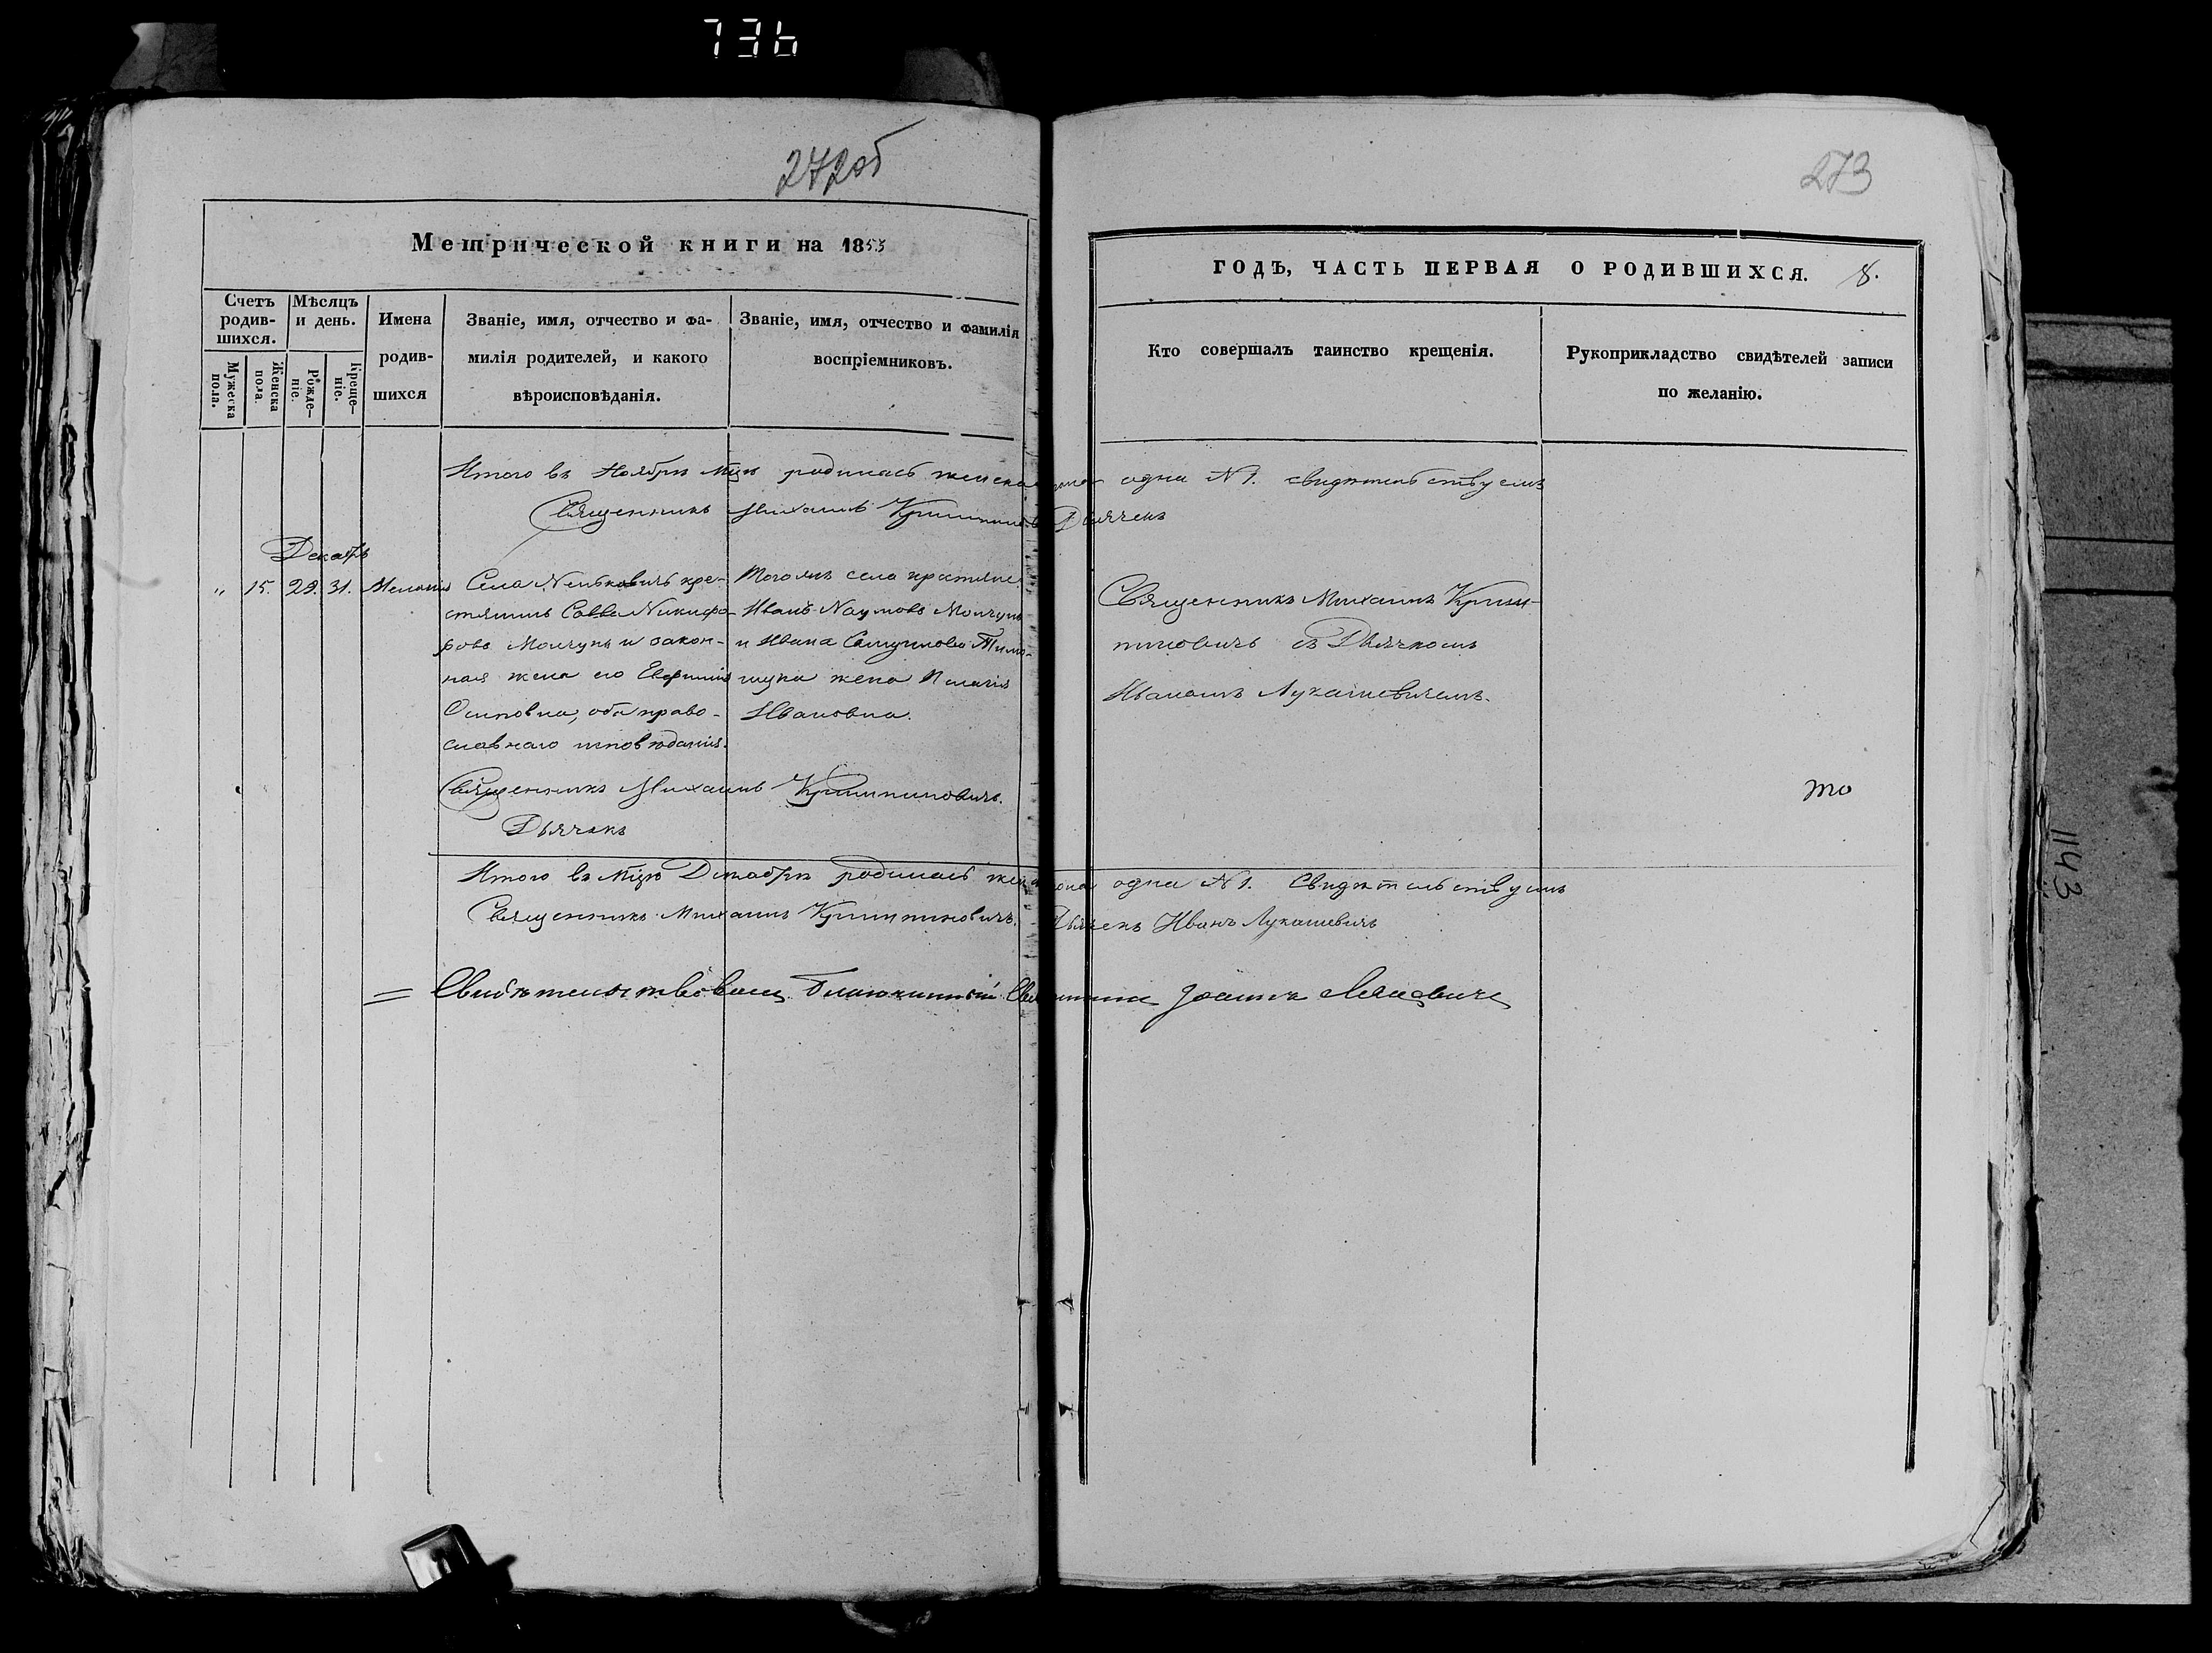 736
272об
273
Метрической книги на 1853
ГОДЪ, ЧАСТЬ ПЕРВАЯ О РОДИВШИХСЯ. 8.
Счетъ родив-шихся.
Мужеска пола.
Женска пола.
Мѣсяцъ и день.
Рожде-ніе.
Креще-ніе.
Имена родив-шихся
Званіе, имя, отчество и фа-
милія родителей, и какого
вѣроисповѣданія.
Званіе, имя, отчество и фамилія
воспріемниковъ.
Кто совершалъ таинство крещенія.
Рукоприкладство свидѣтелей записи
по желанію.
Итого въ Ноябрѣ мцѣ родилась женска пола одна N 1. свидѣтельствуемъ
Священникъ Михаилъ Дьячекъ
Декабрь
" 15. 29. 31. Меланія
Села кре-
стянинъ Савва Никифо-
ровъ Молчунъ и закон-
ная жена его Евфимія
Осиповна, оба право-
славнаго исповѣданія.
Того же села крестяне
Иванъ Наумовъ Молчунъ
и Ивана Самуилова
жена Пелагія
Ивановна.
Священникъ Михаилъ
съ Дьячкомъ
Иваномъ Лукашевичемъ.
Священникъ Михаилъ
Дьячекъ
то
Итого въ мцѣ Декабрѣ родилась жен пола одна N 1. Свидѣтельствуемъ
Священникъ Михаилъ Дьячекъ Иванъ Лукашевичъ
Свидѣтельствовалъ Благочинный Священникъ Іоаннъ
1143